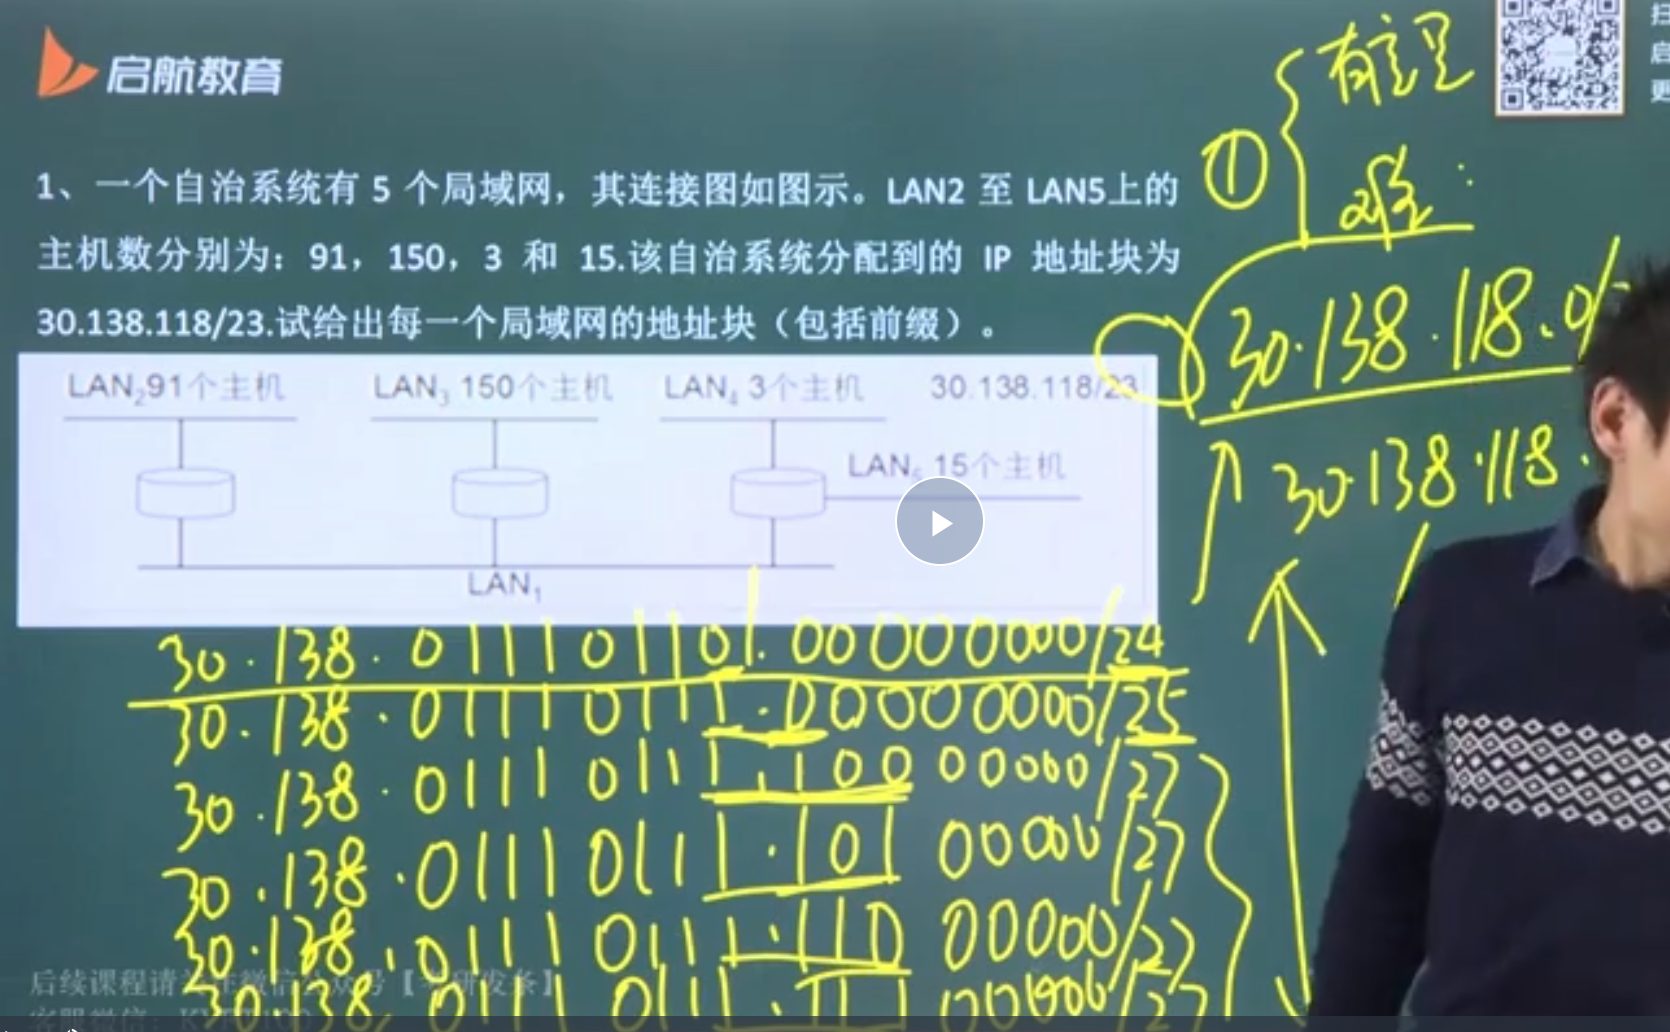 启航教育
扫
启
更
1、一个自治系统有 5 个局域网，其连接图如图示。LAN2 至 LAN5上的
主机数分别为：91，150，3 和 15.该自治系统分配到的 IP 地址块为
30.138.118/23.试给出每一个局域网的地址块（包括前缀）。
①
30.138.118.0/
30.138.118.
LAN₂91个主机
LAN₃ 150个主机
LAN₄ 3个主机
30.138.118/23
LAN₅ 15个主机
LAN₁
30.138.01110110.00000000/24
30.138.01110111.00000000/25
30.138.01110111.10000000/27
30.138.01110111.10100000/27
30.138.01110111.11000000/27
30.138.01110111.11100000/27
后续课程请关注微信公众号【考研发条】
客服微信：